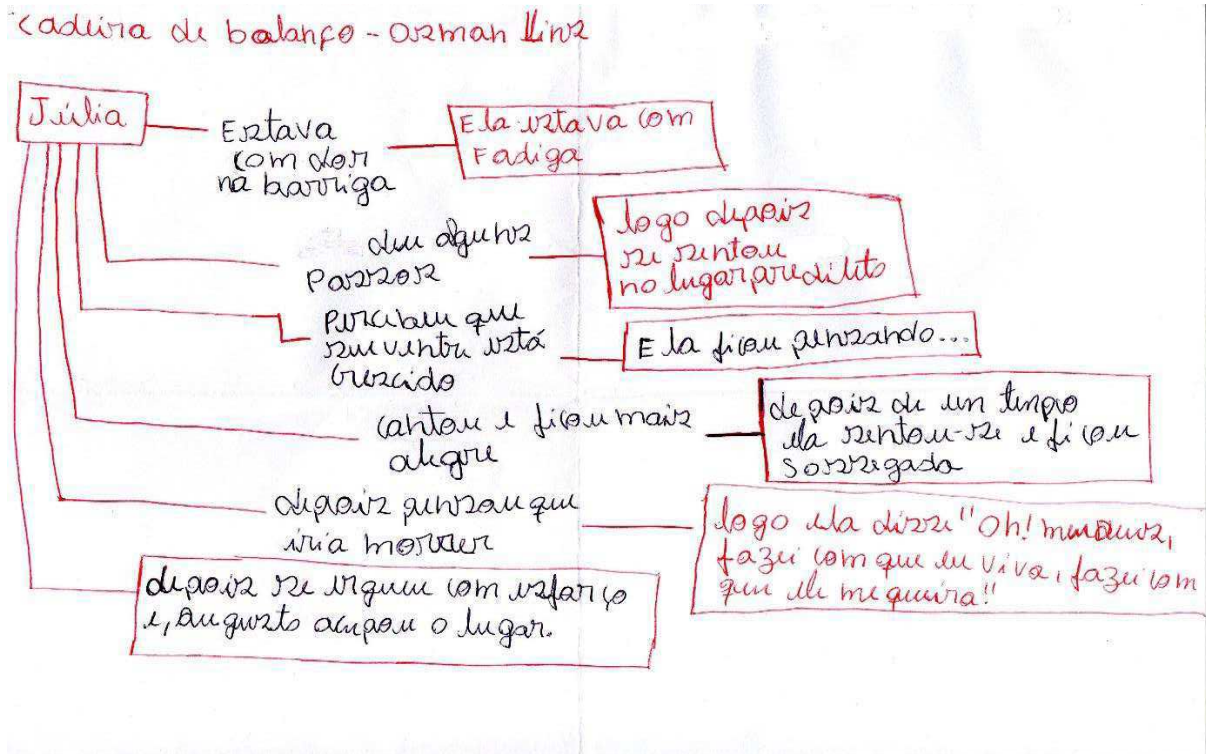 Cadeira de balanço - Osman Lins
Júlia
Estava
com dor
na barriga
Ela estava com
Fadiga
deu alguns
Passos
logo depois
se sentou
no lugar predileto
Percebeu que
seu ventre está
crescido
Ela ficou pensando...
cantou e ficou mais
alegre
depois de um tempo
ela sentou-se e ficou
Sossegada
depois pensou que
iria morrer
logo ela disse "Oh! meu deus,
fazei com que eu viva, fazei com
que ele me queira!"
depois se ergueu com esforço
e, Augusto ocupou o lugar.